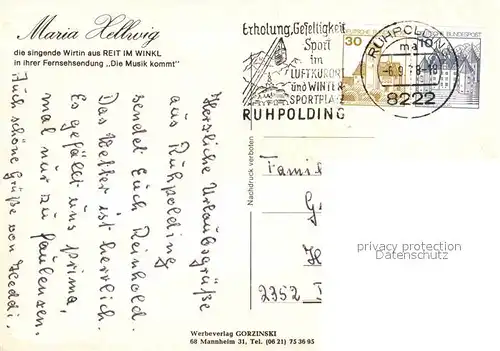 Maria Hellwig
die singende Wirtin aus REIT IM WINKL
in ihrer Fernsehsendung „Die Musik kommt“
Herzliche Urlaubsgrüße
aus Ruhpolding
sendet Euch Reinhold.
Das Wetter ist herrlich.
Es gefällt uns prima,
mal nur zu faulenzen.
Auch schöne Grüße von Heddi.
Erholung, Geselligkeit
Sport
im
LUFTKURORT
und WINTER
SPORTPLATZ
RUHPOLDING
30
DEUTSCHE BUNDESPOST
10
RUHPOLDING
ma
8222
Nachdruck verboten
Famil
G
H
2352
privacy protection
Datenschutz
Werbeverlag GORZINSKI
68 Mannheim 31, Tel. (06 21) 75 36 95